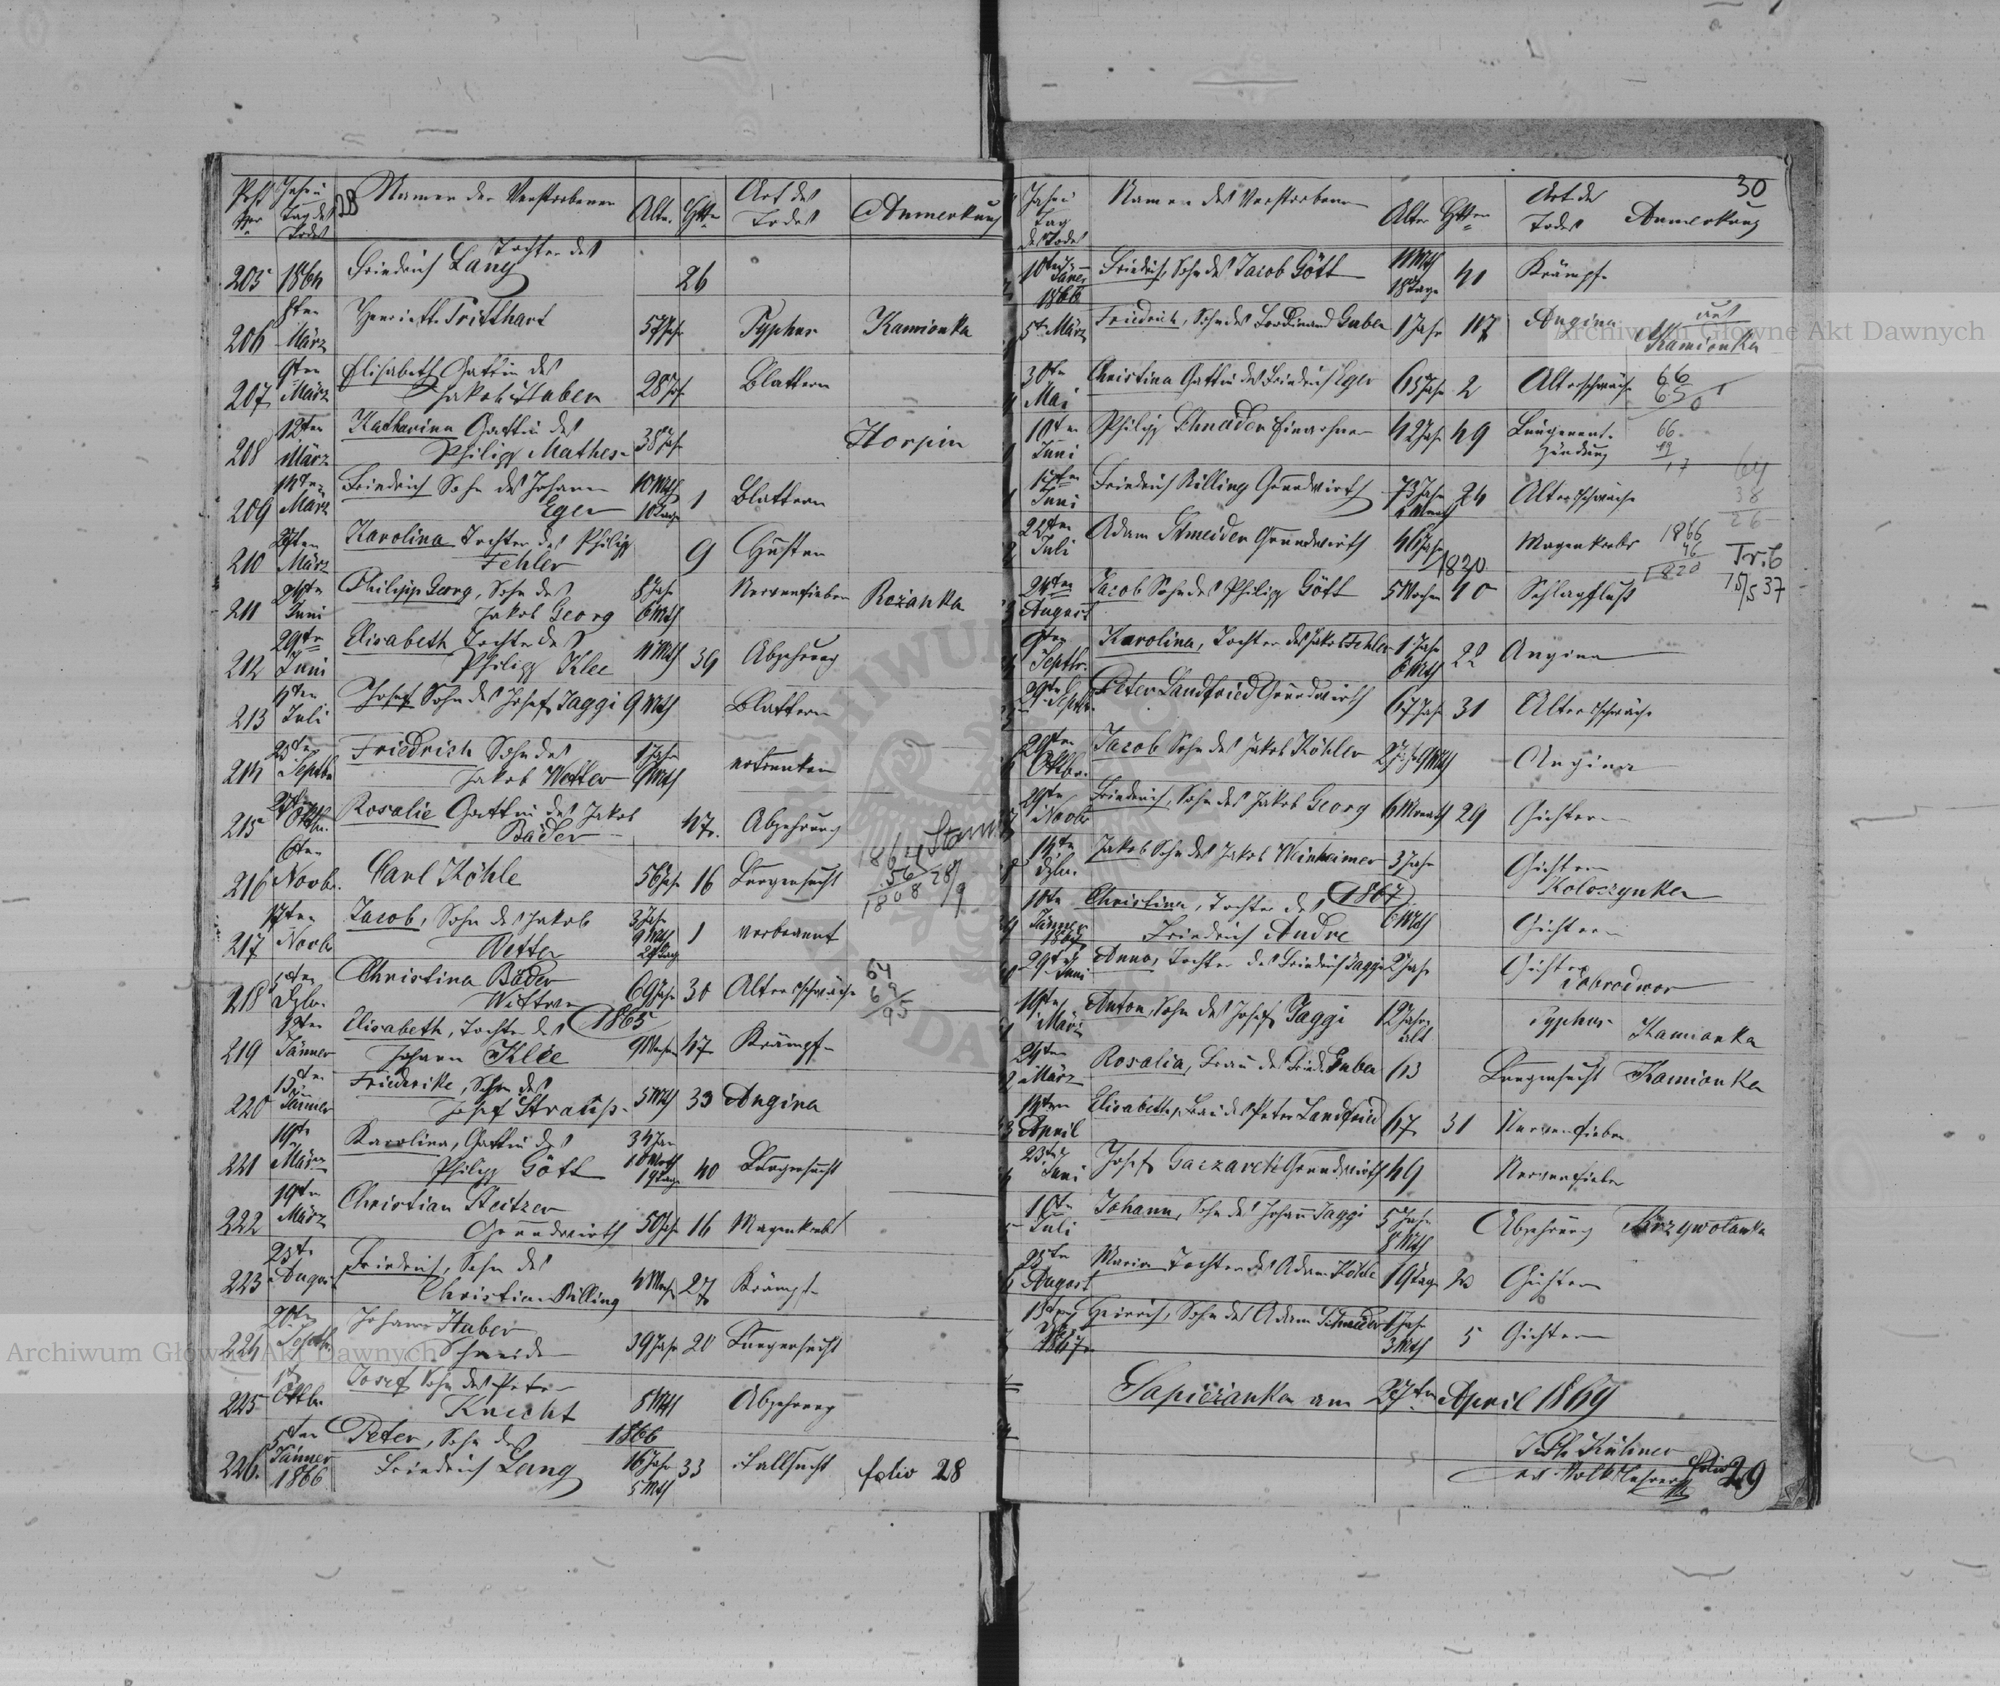 Post Nro
Jahr u Tag des Todes
28 Namen der Verstorbenen
Alter. HNro
Art des Todes
Anmerkung
Tochter des
205 1864 Friedrich Lang 26
206 8ten März Henriette Tritthart 57 Jahr Typhus Kamionka
207 9ten März Elisabeth Gattin des
Jakob Huber 28 Jahr Blattern
208 12ten März Katharina Gattin des
Philipp Mathes 38 Jahr Horpin
209 14ten März Friedrich Sohn des Johann
Eger 10 Mth 10 Tage 1 Blattern
210 März Karolina Tochter des Philipp
Fehler 9 Husten
211 Juni Philipp Georg, Sohn des
Jakob Georg 8 Jahr 6 Mth Nervenfieber Rożanka
212 29ten Juni Elisabeth Tochter des
Philipp Klee 11 Mth 39 Abzehrung
213 Juli Josef Sohn des Josef Jaggi 9 Mth Blattern
214 Septbr Friedrich Sohn des
Jakob Wetter 1 Jahr 9 Mth ertrunken
215 Oktbr. Rosalie Gattin des Jakob
Bäder 47. Abzehrung
216 6ten Novbr. Carl Köhle 56 Jahr 16 Lungensucht
1864 Stam
56 28/9
1808
217 17ten Novb Jacob, Sohn des Jakob
Wetter 3 Jahr 9 Mth 24 Tag 1 verbrannt
218 Dzbr. Christina Bäder
Wittwe 69 Jahr 30 Altersschwäche
64
69/95
219 Jänner Elisabeth, Tochter des 1865
Johann Klee 9 Wochen 47 Krämpfe
220 Jänner Friederike, Sohn des
Josef Strauß 5 Mth 33 Angina
221 19te März Karolina, Gattin des
Philipp Gött 34 Jahr 10 Mth 19 Tage 40 Lungensucht
222 19te März Christian Steitzer
Grundwirth 50 Jahr 16 Magenkrebs
223 August Friedrich, Sohn des
Christian Billing 4 Woch 27 Krämpfe
224 20ten Septbr Johann Huber
Schneider 39 Jahr 20 Lungensucht
225 Oktbr. Josef Sohn des Peter
Knecht 8 Mth Abzehrung
226. 5ten Jänner 1866 Peter, Sohn des 1866
Friedrich Lang 16 Jahr 5 Mth 33 Fallsucht folio 28
30
Jahr u Tag des Todes
Namen des Verstorbenen
Alter HNro
Art des Todes
Anmerkung
10ten Jäner 1866 Friedrich, Sohn des Jacob Gött 11 Mth 18 Tage 40 Krämpfe
5te März Friedrich, Sohn des Ferdinand Huber 1 Jahr 107 Angina aus Kamionka
30ten Mai Christina Gattin des Friedrich Eger 65 Jahr 2 Altersschwäche
66
65
10ten Juni Philipp Schneider 42 Jahr 49 Lungenentzündung
66.
49
17
Juni Friedrich Billing Grundwirth 73 Jahr 26 Altersschwäche
64
38
26
22ten Juli Adam Schneider Grundwirth 46 Jahr 1820 Magenkrebs
1866
46
1820
Tr: 6
15/5 37
24ten August Jacob Sohn des Philipp Gött 5 Wochen 40 Schlagfluß
Septbr. Karolina, Tochter des Jakob Fehler 1 Jahr 6 Mth 22 Angina
29te Septbr. Peter Landfried Grundwirth 67 Jahr 31 Altersschwäche
29ten Oktbr. Jacob Sohn des Jakob Köhler 2 Jahr 9 Mth Angina
29te Novbr Friedrich, Sohn des Jakob Georg 6 Monath 29 Gichtern
14te Dzbr. Jakob Sohn des Jakob Weinheimer 3 Jahr Gichtern
Koloczynka
10te Jänner 1867 Christina, Tochter des 1867
Friedrich Andre 6 Mth Gichtern
29te Juni Anna, Tochter des Friedrich Jaggi 2 Jahr Gichter
Dobrodwor
März Anton, Sohn des Josef Jaggi 12 Jahr alt Typhus Kamionka
24ten März Rosalia, Frau des Fried. Huber 63 Lungensucht Kamionka
14ten April Elisabeth, Frau des Peter Landfried 67 31 Nervenfieber
23ten Juni Josef Grundwirth 49 Nervenfieber
10te Juli Johann, Sohn des Johann Jaggi 5 Jahr 8 Mth Abzehrung Krzywolanka
25te August Maria Tochter des Adam Köhle 19 Tage Gichtern
1867 Heinrich, Sohn des Adam Schneider 1 Jahr 3 Mth 5 Gichtern
Sapieżanka am 27ten April 1869
Kühner
Volkslehrer
folio 29
Archiwum Główne Akt Dawnych
Archiwum Główne Akt Dawnych
Archiwum Główne Akt Dawnych